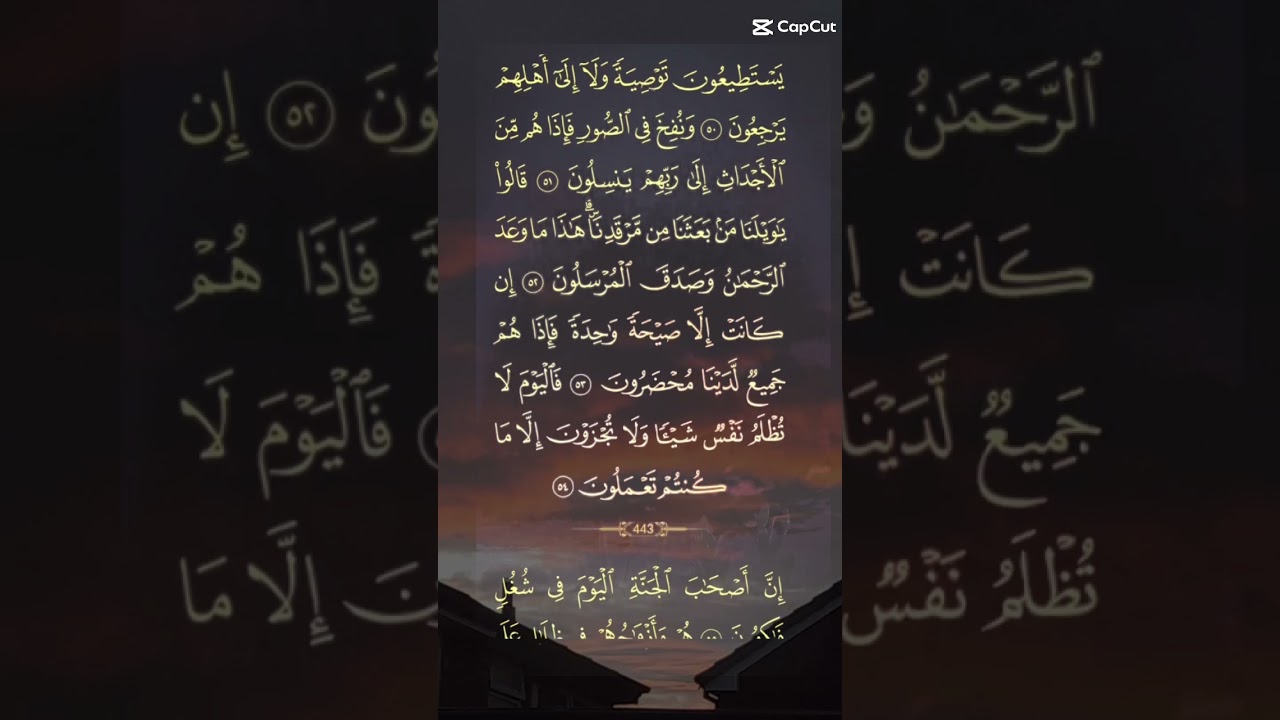 CapCut
يَسۡتَطِيعُونَ تَوۡصِيَةٗ وَلَآ إِلَىٰٓ أَهۡلِهِمۡ
يَرۡجِعُونَ ٥٠ وَنُفِخَ فِي ٱلصُّورِ فَإِذَا هُم مِّنَ
ٱلۡأَجۡدَاثِ إِلَىٰ رَبِّهِمۡ يَنسِلُونَ ٥١ قَالُواْ
يَٰوَيۡلَنَا مَنۢ بَعَثَنَا مِن مَّرۡقَدِنَاۜۗ هَٰذَا مَا وَعَدَ
ٱلرَّحۡمَٰنُ وَصَدَقَ ٱلۡمُرۡسَلُونَ ٥٢ إِن
كَانَتۡ إِلَّا صَيۡحَةٗ وَٰحِدَةٗ فَإِذَا هُمۡ
جَمِيعٞ لَّدَيۡنَا مُحۡضَرُونَ ٥٣ فَٱلۡيَوۡمَ لَا
تُظۡلَمُ نَفۡسٞ شَيۡـٔٗا وَلَا تُجۡزَوۡنَ إِلَّا مَا
كُنتُمۡ تَعۡمَلُونَ ٥٤
443
إِنَّ أَصۡحَٰبَ ٱلۡجَنَّةِ ٱلۡيَوۡمَ فِي شُغُلٖ